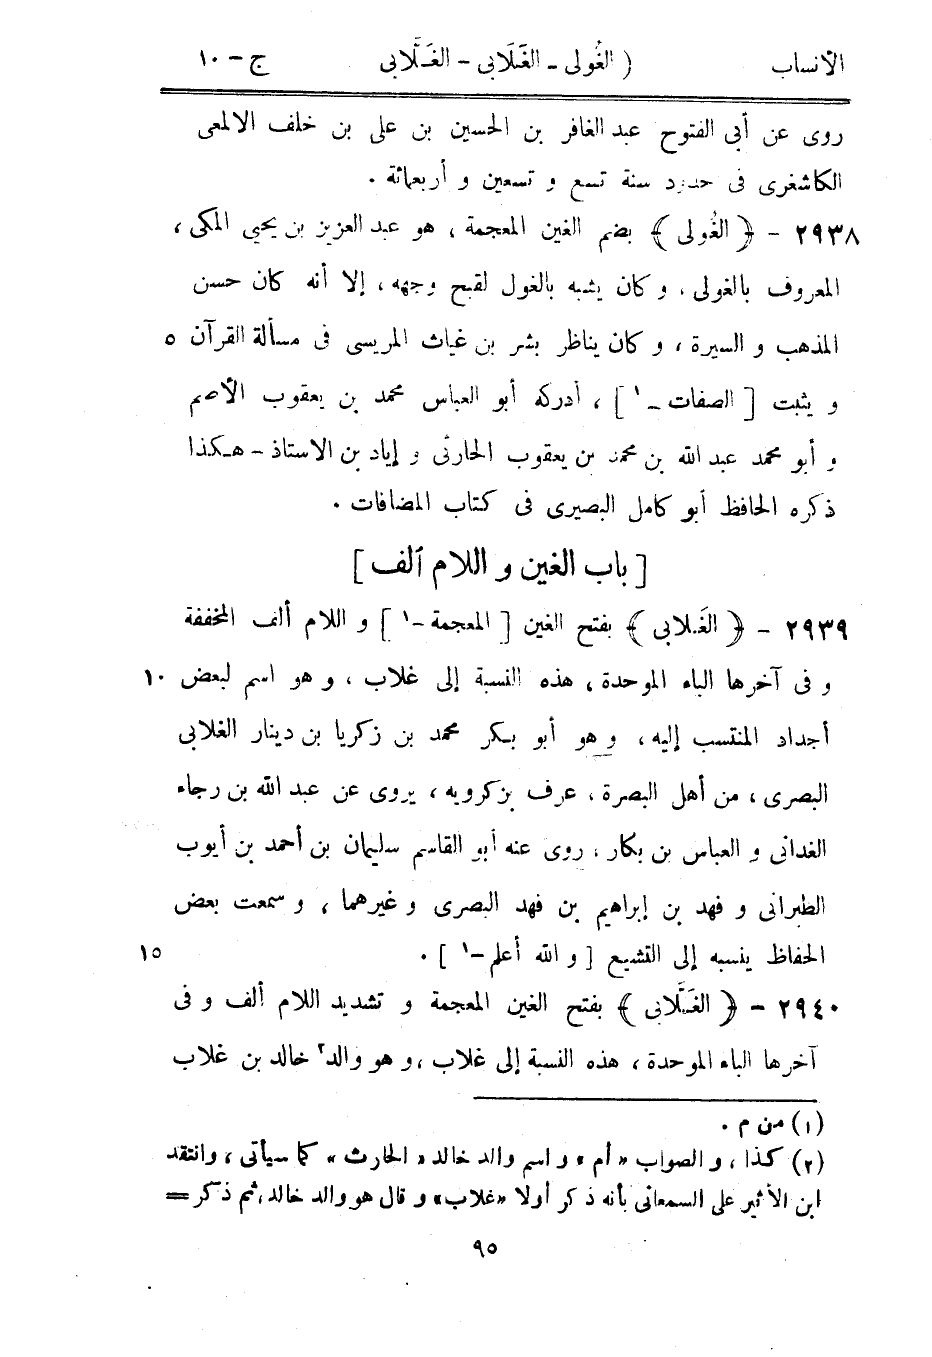 الأنساب ( الغُولى - الغَلَابى - الغَلَّابى ج - ١٠
روى عن أبى الفتوح عبد الغافر بن الحسين بن على بن خلف الالمعى
الكاشغرى فى حدود سنة تسع و تسعين و أربعمائة .
٢٩٣٨ - ﴿ الغُولى ﴾ بضم الغين المعجمة ، هو عبد العزيز بن يحيى المكى ،
المعروف بالغولى ، و كان يشبه بالغول لقبح وجهه ، إلا أنه كان حسن
المذهب و السيرة ، و كان يناظر بشر بن غياث المريسى فى مسألة القرآن ٥
و يثبت [ الصفات - ١ ] ، أدركه أبو العباس محمد بن يعقوب الأصم
و أبو محمد عبد الله بن محمد بن يعقوب الحارثى و إياد بن الاستاذ - هكذا
ذكره الحافظ أبو كامل البصيرى فى كتاب المضافات .
[ باب الغين و اللام ألف ]
٢٩٣٩ - ﴿ الغَلابى ﴾ بفتح الغين [ المعجمة - ١ ] و اللام ألف المخففة
و فى آخرها الباء الموحدة ، هذه النسبة إلى غلاب ، و هو اسم لبعض ١٠
أجداد المنتسب إليه ، و هو أبو بكر محمد بن زكريا بن دينار الغلابى
البصرى ، من أهل البصرة ، عرف بزكرويه ، يروى عن عبد الله بن رجاء
الغدانى و العباس بن بكار ، روى عنه أبو القاسم سليمان بن أحمد بن أيوب
الطبرانى و فهد بن إبراهيم بن فهد البصرى و غيرهما ، و سمعت بعض
الحفاظ ينسبه إلى التشيع [ و الله أعلم - ١ ] . ١٥
٢٩٤٠ - ﴿ الغَلَّابى ﴾ بفتح الغين المعجمة و تشديد اللام ألف و فى
آخرها الباء الموحدة ، هذه النسبة إلى غلاب ، و هو والد٢ خالد بن غلاب
(١) من م .
(٢) كذا ، و الصواب « أم » و اسم والد خالد « الحارث » كما سيأتى ، وانتقد
ابن الأثير على السمعانى بأنه ذكر أولا «غلاب» و قال هو والد خالد ، ثم ذكر =
٩٥